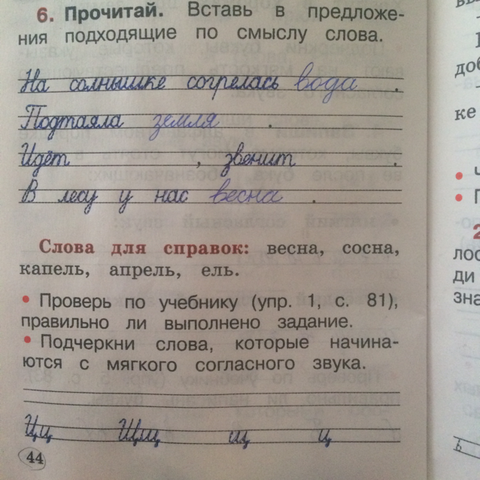 6. Прочитай. Вставь в предложе-
ния подходящие по смыслу слова.
На солнышке согрелась вода .
Подтаяла земля .
Идёт , звенит .
В лесу у нас весна .
Слова для справок: весна, сосна,
капель, апрель, ель.
• Проверь по учебнику (упр. 1, с. 81),
правильно ли выполнено задание.
• Подчеркни слова, которые начина-
ются с мягкого согласного звука.
Цц Щщ щ ц
44